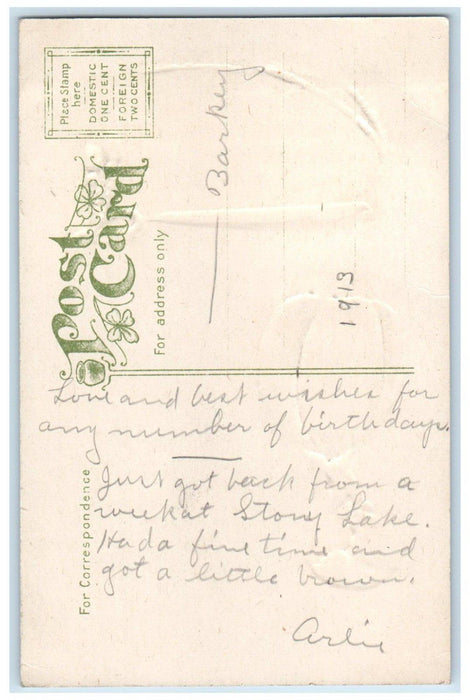 Place Stamp
here
DOMESTIC
ONE CENT
FOREIGN
TWO CENTS
Post
Card
For address only
Barkey
1913
For Correspondence
Love and best wishes for
any number of birthdays.
Just got back from a
week at Stony Lake.
Had a fine time and
got a little brown.
Arlie